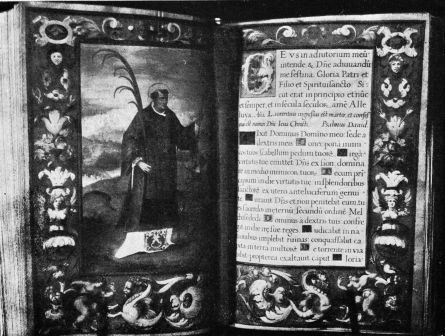 Eus in adiutorium meū
intende & Dñe adiuuandū
me festina. Gloria Patri et
Filio et Spiritui sancto Si
cut erat in principio et nūc
et semper et in secula seculorū, amē Alle
luya. Laurentius ingressus est martir et confes
nomen Dñi Iesu Christi. Psalmus Dauid.
Ixit Dominus Domino meo: sede a
dextris meis onec ponā inimi
cos tuos scabellum pedum tuorū irgā
virtutis tue emittet Dñs ex sion domina
re in medio inimicorū tuorū ecum prin
cipium in die virtutis tue in splendoribus
sanctorū ex utero ante luciferum genui
te urauit Dñs et non penitebit eum tu
es sacerdos in eternū secundū ordinē Mel
chisedech Dominus a dextris tuis confre
git in die ire sue reges udicabit in na
tionibus implebit ruinas: conquassabit ca
pita in terra multorū e torrente in via
bibet: propterea exaltauit caput loria